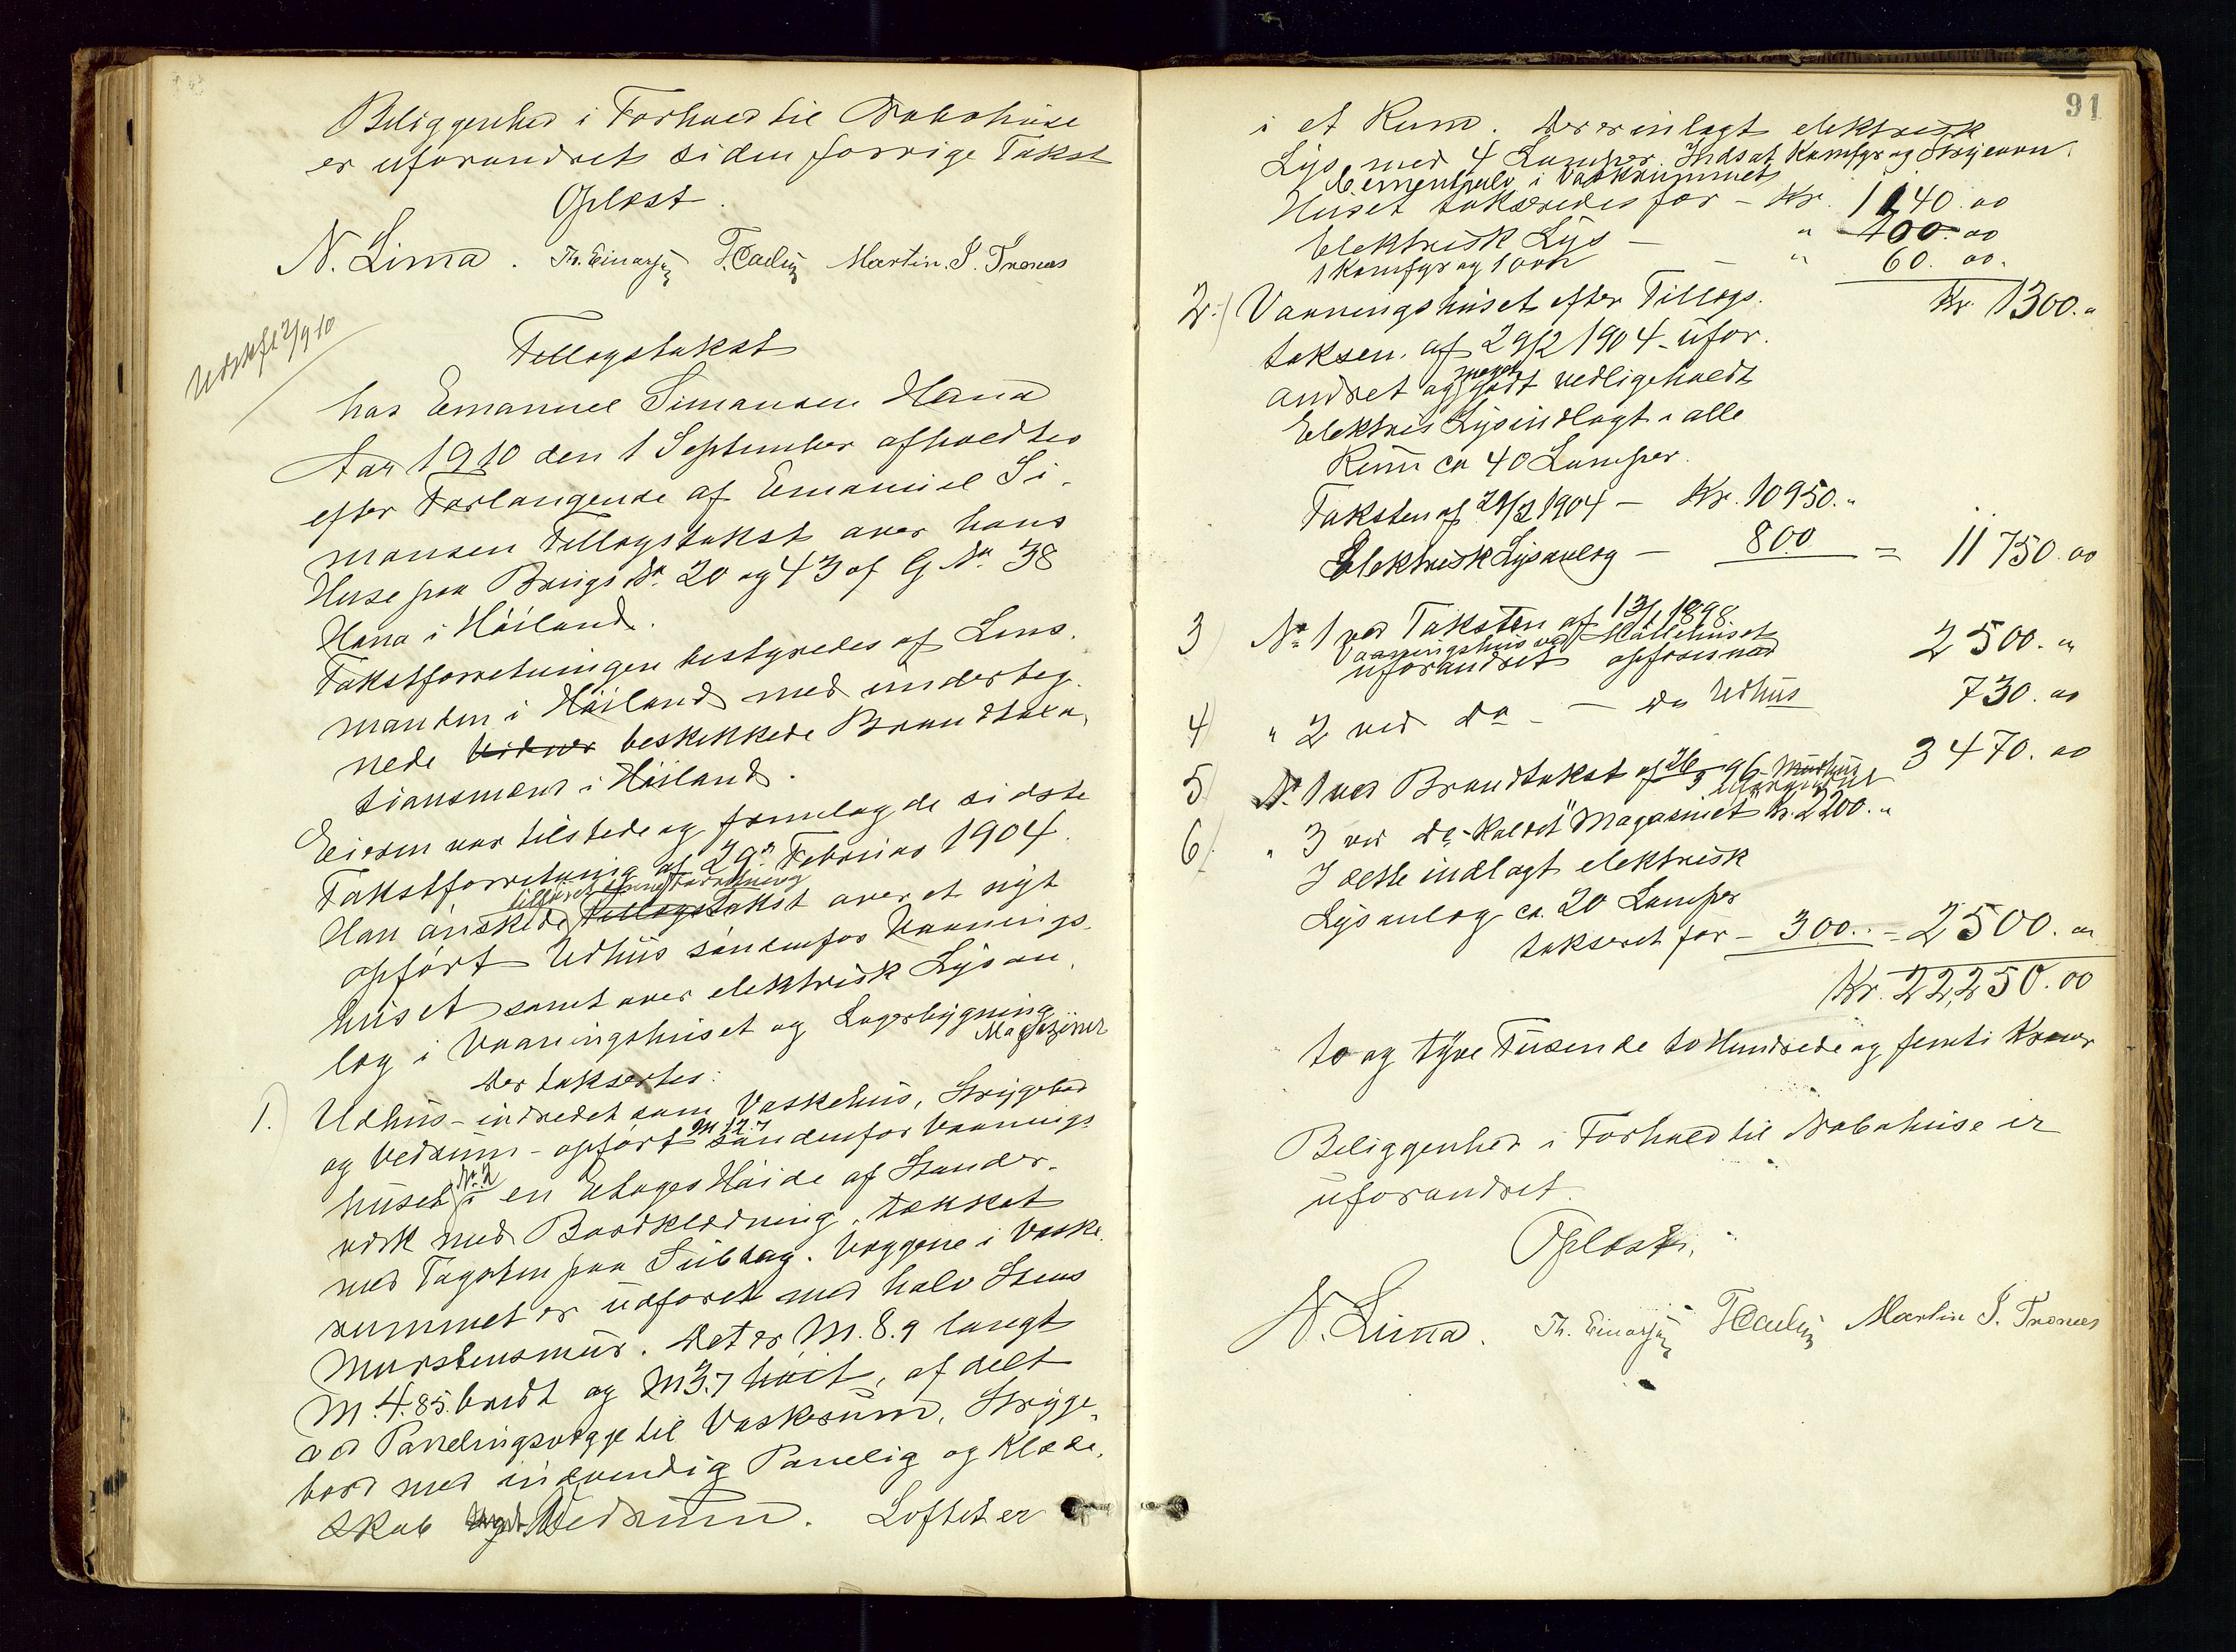 Beliggenhed i Forhold til Nabohuse
er uforandret siden forrige Takst
Oplæst.
N. Lima. Th. Einarsen Martin. S. Tronæs
Udskrft 2/9 10
Tillægstakst
hos Emanuel Simonsen Hana
Aar 1910 den 1 September afholdtes
efter Forlangende af Emanuel Si-
monsen Tillægstakst over hans
Huse paa Brugs No. 20 og 43 af G No. 38
Hana i Höiland.
Takstforretningen bestyredes af Lens-
manden i Höiland med underteg-
nede Vidner beskikkede Brandtaxa-
tionsmænd i Höiland.
Eieren var tilstede og fremlagde sidste
Takstforretning af 29de Februar 1904.
Han önskede Tillægstakst over et nyt
opfört Udhus söndenfor Vaanings-
huset samt over elektrisk Lysan-
læg i Vaaningshuset og Lagerbygning
Magasinet
Der taksertes:
1.) Udhus - indredet som Vaskehus, Strygebod
og Vedrum - opfört M 12.7 söndenfor Vaanings-
huset No. 2 i en Etages Höide af Stender-
værk med Bordklædning, tækket
med Tagsten paa Subtag. Væggene i Vaske-
rummet er udforet med halv Stens
Murstensmur. Det er M. 8.9 langt
M. 4.85. bredt og M 3.7 höit, afdelt
ved Panelingsvægge til Vaskerum, Stryge-
bod med indvendig Panelig og Klæde-
skab Vedrum. Loftet er
91
i et Rum. Der er inlagt elektrisk
Lys med 4 Lamper. Indsat Komfyr og Strygeovn.
Cementgulv i Vaskrummet
Huset takseredes for - Kr. 1140.00
Elektrisk Lys - " 100.00
1 Komfyr og 1 ovn - " 60.00.
Kr 1300."
2.) Vaaningshuset efter Tillægs-
taksen. af 29/2 1904 - ufor-
andret og meget godt vedligeholdt
Elektris Lys indlagt i alle
Rum ca 40 Lamper.
Taksten af 29/2 1904 - Kr. 10950."
Elektrisk Lysanlæg - 800 = 11750.00
3) No 1 ved Taksten af 13/1 1898
Vaaningshus ved Möllehuset
uforandret 2500."
4) " 2 ved Do - - Do Udhus 730.00
5) No. 1 ved Brandtakst af 96 3470.00
6) " 3 ved Do - Kaldet "Magasinet Kr. 2200."
I dette indlagt elektrisk
Lysanlæg ca. 20 Lamper
takseret for - 300. = 2500.00
Kr. 22,250.00
to og tyve Tusende to Hundrede og femti Kroner
Beliggenhed i Forhold til Nabohuse er
uforandret.
Oplæst.
N. Lima. Th. Einarsen Martin S. Tronæs